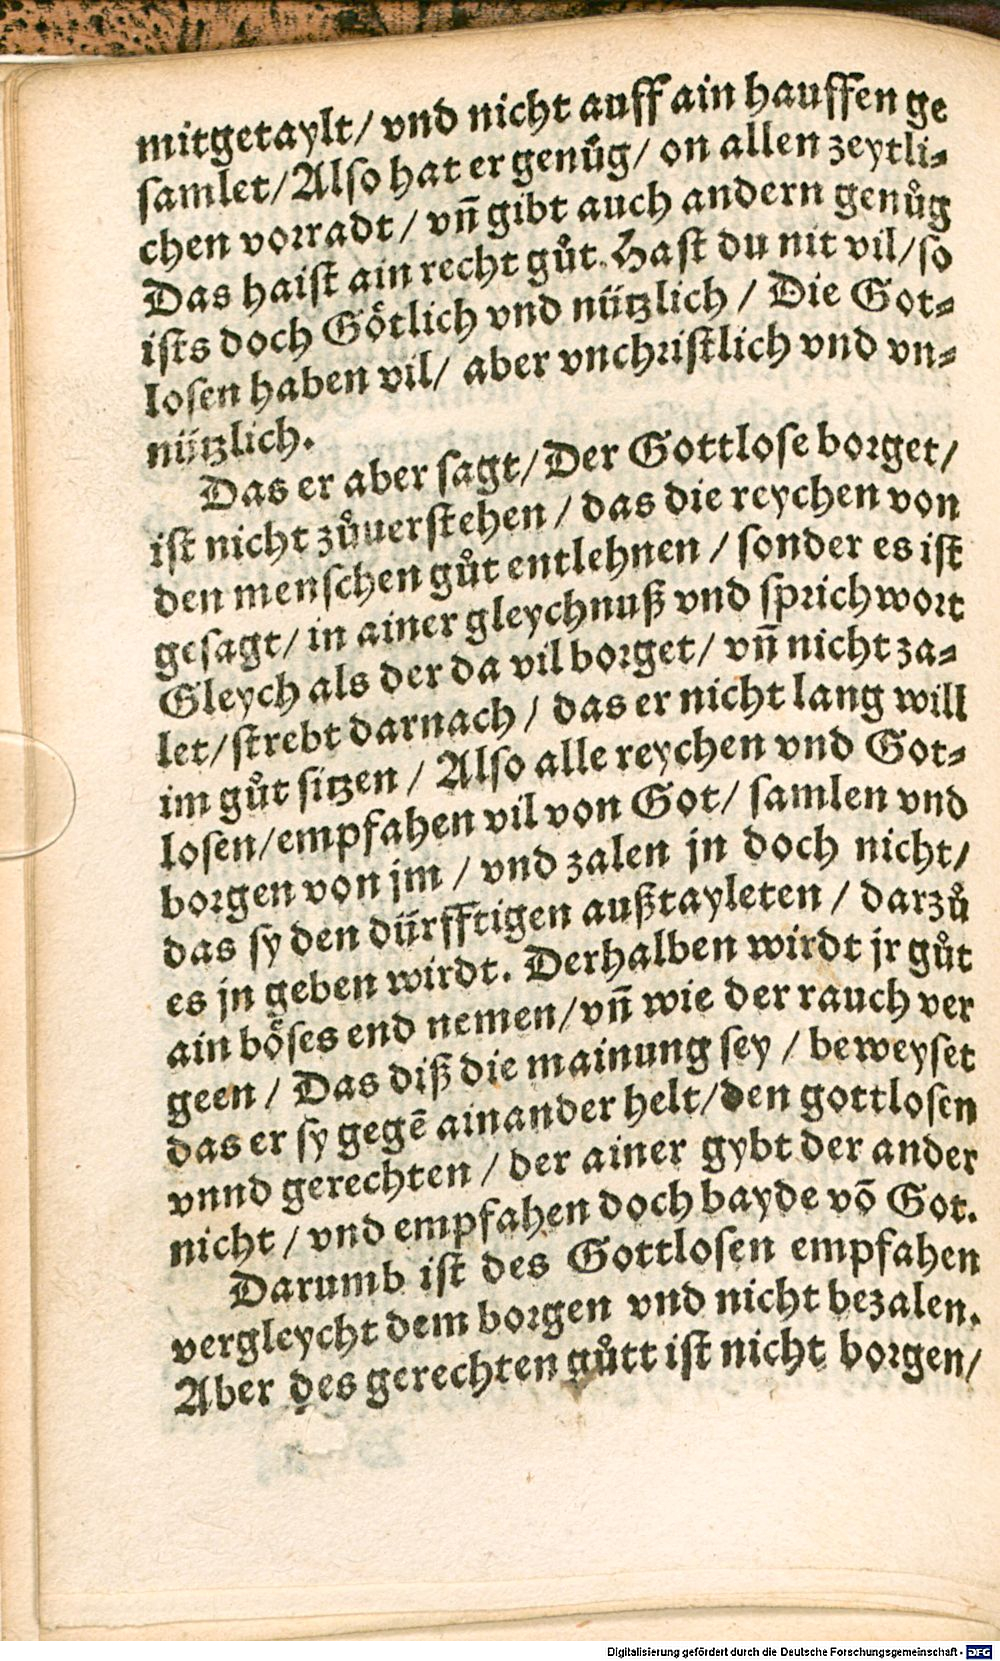 mitgetaylt/ vnd nicht auff ain hauffen ge
samlet/Also hat er genůg/ on allen zeytli⸗
chen vorradt/ vn̄ gibt auch andern genůg
Das haist ain recht gůt. Hast du nit vil/so
ists doch Götlich vnd nützlich / Die Got⸗
losen haben vil/ aber vnchristlich vnd vn⸗
nützlich.
Das er aber sagt/Der Gottlose borget/
ist nicht zůuerstehen / das die reychen von
den menschen gůt entlehnen / sonder es ist
gesagt/ in ainer gleychnuß vnd sprichwort
Gleych als der da vil borget/ vn̄ nicht za⸗
let/strebt darnach/ das er nicht lang will
im gůt sitzen / Also alle reychen vnd Got⸗
losen/empfahen vil von Got/ samlen vnd
borgen von jm / vnd zalen jn doch nicht/
das sy den dürfftigen außtayleten / darzů
es jn geben wirdt. Derhalben wirdt jr gůt
ain böses end nemen/vn̄ wie der rauch ver
geen / Das diß die mainung sey / beweyset
das er sy gegē ainander helt/den gottlosen
vnnd gerechten / der ainer gybt der ander
nicht / vnd empfahen doch bayde vō Got.
Darumb ist des Gottlosen empfahen
vergleycht dem borgen vnd nicht bezalen.
Aber des gerechten gůtt ist nicht borgen/
Digitalisierung gefördert durch die Deutsche Forschungsgemeinschaft - DFG